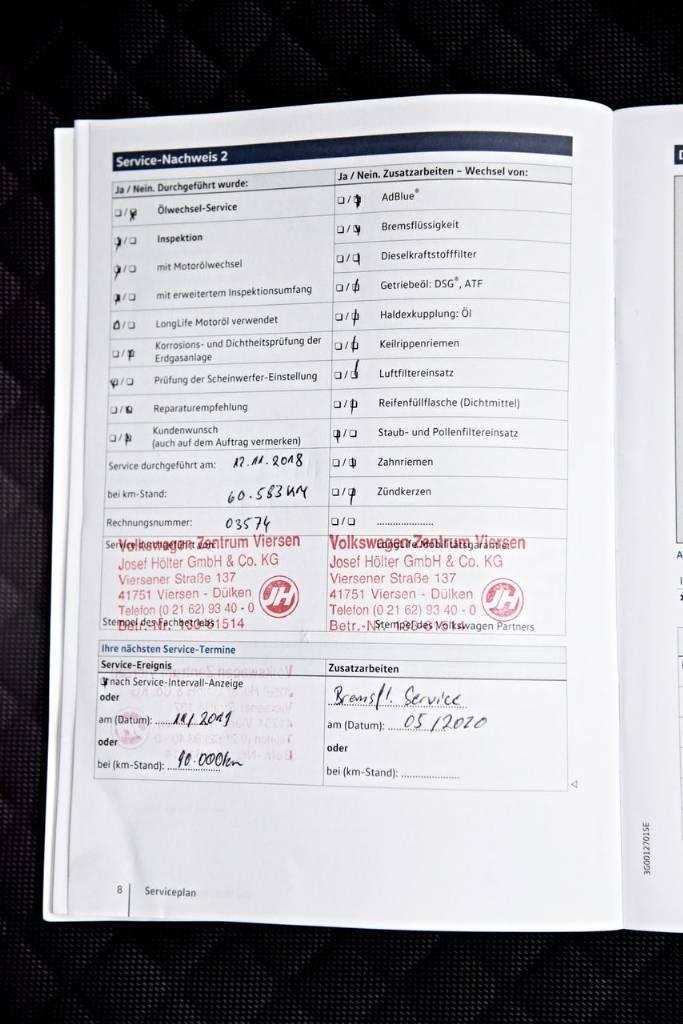 Service-Nachweis 2
Ja / Nein. Durchgeführt wurde:
Ölwechsel-Service
Inspektion
mit Motorölwechsel
mit erweitertem Inspektionsumfang
LongLife Motoröl verwendet
Korrosions- und Dichtheitsprüfung der
Erdgasanlage
Prüfung der Scheinwerfer-Einstellung
Reparaturempfehlung
Kundenwunsch
(auch auf dem Auftrag vermerken)
Service durchgeführt am: 12.11.2018
bei km-Stand: 60.583 KM
Rechnungsnummer: 03574
Ja / Nein. Zusatzarbeiten – Wechsel von:
AdBlue®
Bremsflüssigkeit
Dieselkraftstofffilter
Getriebeöl: DSG®, ATF
Haldexkupplung: Öl
Keilrippenriemen
Luftfiltereinsatz
Reifenfüllflasche (Dichtmittel)
Staub- und Pollenfiltereinsatz
Zahnriemen
Zündkerzen
....................
Service durchgeführt von:
Volkswagen Zentrum Viersen
Josef Hölter GmbH & Co. KG
Viersener Straße 137
41751 Viersen - Dülken
Telefon (0 21 62) 93 40 - 0
Betr.-Nr. 130-61514
JH
Stempel des Fachbetriebs
LongLife Mobilitätsgarantie:
Volkswagen Zentrum Viersen
Josef Hölter GmbH & Co. KG
Viersener Straße 137
41751 Viersen - Dülken
Telefon (0 21 62) 93 40 - 0
Betr.-Nr.
JH
Stempel des Volkswagen Partners
Ihre nächsten Service-Termine
Service-Ereignis
nach Service-Intervall-Anzeige
oder
am (Datum): 11/2019
oder
bei (km-Stand): 90.000km
Zusatzarbeiten
Bremsfl. Service
am (Datum): 05/2020
oder
bei (km-Stand): ....................
8 Serviceplan
3G0012701SE